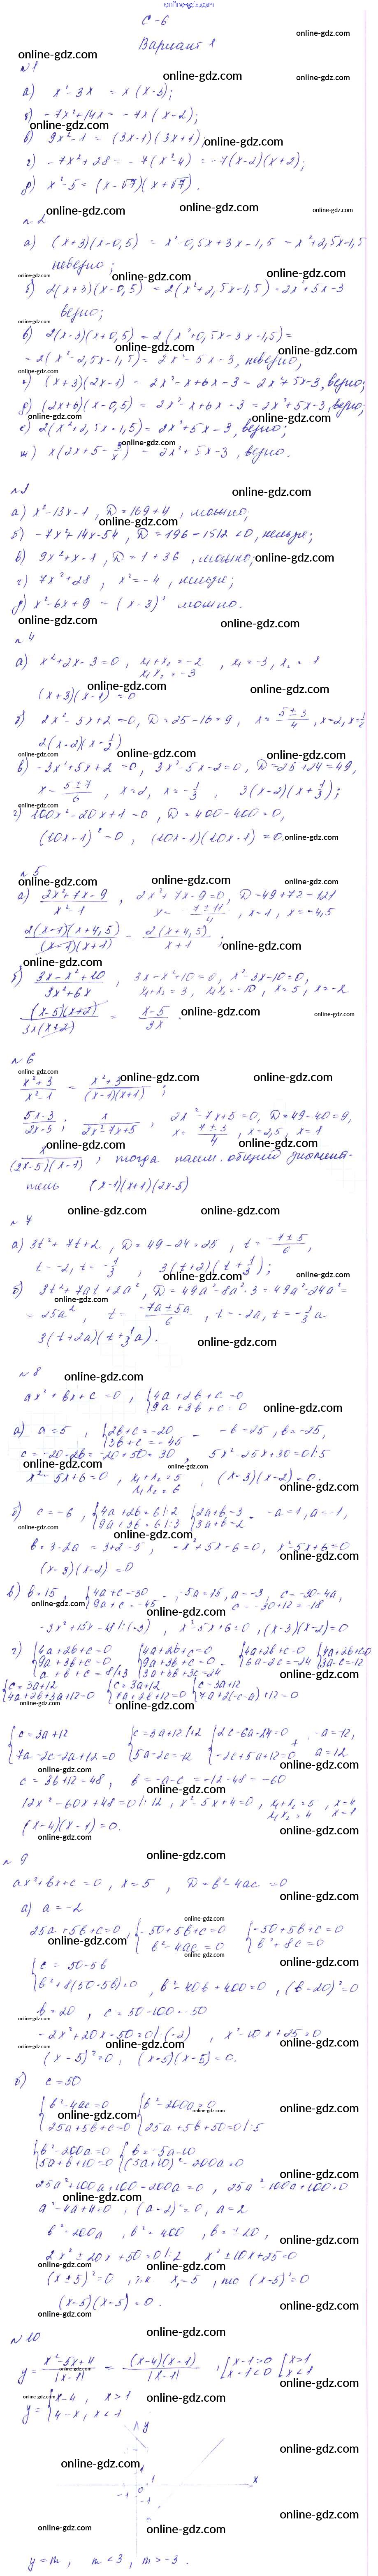 online-gdz.com
С-6
Вариант 1
№1
а) x²-3x = x(x-3);
б) -7x²+14x = -7x(x-2);
в) 9x²-1 = (3x-1)(3x+1);
г) -7x²+28 = -7(x²-4) = -7(x-2)(x+2);
д) x²-5 = (x-√7)(x+√7).
№2
а) (x+3)(x-0,5) = x²-0,5x+3x-1,5 = x²+2,5x-1,5
неверно;
б) 2(x+3)(x-0,5) = 2(x²+2,5x-1,5) = 2x²+5x-3
верно;
в) 2(x-3)(x+0,5) = 2(x²+0,5x-3x-1,5) =
= 2(x²-2,5x-1,5) = 2x²-5x-3, неверно;
г) (x+3)(2x-1) = 2x²-x+6x-3 = 2x²+5x-3, верно;
д) (2x+6)(x-0,5) = 2x²-x+6x-3 = 2x²+5x-3, верно;
е) 2(x²+2,5x-1,5) = 2x²+5x-3, верно;
ж) x(2x+5-3/x) = 2x²+5x-3, верно.
№3
а) x²-13x-1, D=169+4, можно;
б) -7x²+14x-54, D=196-1512<0, нельзя;
в) 9x²+x-1, D=1+36, можно;
г) 7x²+28, x²=-4, нельзя;
д) x²-6x+9 = (x-3)² можно.
№4
а) x²+2x-3=0, x₁+x₂=-2 x₁x₂=-3, x₁=-3, x₂=1
(x+3)(x-1)=0
б) 2x²-5x+2=0, D=25-16=9, x=(5±3)/4, x=2, x=1/2
2(x-2)(x-1/2)
в) -3x²+5x+2=0, 3x²-5x-2=0, D=25+24=49,
x=(5±7)/6, x=2, x=-1/3, 3(x-2)(x+1/3);
г) 100x²-20x+1=0, D=400-400=0,
(10x-1)²=0, (10x-1)(10x-1)=0.
№5
а) (2x²+7x-9)/(x²-1), 2x²+7x-9=0, D=49+72=121
x=(-7±11)/4, x=1, x=-4,5
2(x-1)(x+4,5)/((x-1)(x+1)) = 2(x+4,5)/(x+1);
б) (3x-x²+10)/(3x²+6x), 3x-x²+10=0, x²-3x-10=0,
x₁+x₂=3, x₁x₂=-10, x=5, x=-2
(x-5)(x+2)/(3x(x+2)) = (x-5)/3x.
№6
(x²+3)/(x²-1) = (x²+3)/((x-1)(x+1));
(5x-3)/(2x-5); x/(2x²-7x+5), 2x²-7x+5=0, D=49-40=9,
x=(7±3)/4, x=2,5, x=1
x/((2x-5)(x-1)), тогда наим. общий знамена-
тель (x-1)(x+1)(2x-5)
№7
а) 3t²+7t+2, D=49-24=25, t=(-7±5)/6,
t=-2, t=-1/3, 3(t+2)(t+1/3);
б) 3t²+7at+2a², D=49a²-8a²·3=49a²-24a²=
=25a², t=(-7a±5a)/6, t=-2a, t=-1/3a
3(t+2a)(t+1/3a).
№8
ax²+bx+c=0, {4a+2b+c=0 9a+3b+c=0
а) a=5, {2b+c=-20 3b+c=-45 - -b=25, b=-25,
c=-20-2b=-20+50=30, 5x²-25x+30=0|:5
x²-5x+6=0, x₁+x₂=5 x₁x₂=6, (x-3)(x-2)=0.
б) c=-6, {4a+2b=6|:2 9a+3b=6|:3 {2a+b=3 3a+b=2 - -a=1, a=-1,
b=3-2a=3+2=5, -x²+5x-6=0, x²-5x+6=0
(x-3)(x-2)=0
в) b=15, {4a+c=-30 9a+c=-45 -, -5a=15, a=-3, c=-30-4a,
c=-30+12=-18
-3x²+15x-18|:(-3), x²-5x+6=0, (x-3)(x-2)=0
г) {4a+2b+c=0 9a+3b+c=0 a+b+c=8|·3 {4a+2b+c=0 9a+3b+c=0 3a+3b+3c=24 - {4a+2b+c=0 6a-2c=-24 {4a+2b+c=0 3a-c=-12
{c=3a+12 4a+2b+3a+12=0 {c=3a+12 7a+2b+12=0 {c=3a+12 7a+2(-c-a)+12=0
{c=3a+12 7a-2c-2a+12=0 {c=3a+12|·2 5a-2c=-12 {2c-6a-24=0 -2c+5a+12=0 + -a=-12, a=12
c=36+12=48, b=-a-c=-12-48=-60
12x²-60x+48=0|:12, x²-5x+4=0, x₁+x₂=5 x₁x₂=4, x=4 x=1
(x-4)(x-1)=0.
№9
ax²+bx+c=0, x=5, D=b²-4ac=0
а) a=-2
25a+5b+c=0 {-50+5b+c=0 b²-4ac=0 {-50+5b+c=0 b²+8c=0
{c=50-5b b²+8(50-5b)=0, b²-40b+400=0, (b-20)²=0
b=20, c=50-100=-50
-2x²+20x-50=0|:(-2), x²-10x+25=0
(x-5)²=0, (x-5)(x-5)=0.
б) c=50
{b²-4ac=0 25a+5b+c=0 {b²-200a=0 25a+5b+50=0|:5
{b²-200a=0 5a+b+10=0 {b=-5a-10 (5a+10)²-200a=0
25a²+100a+100-200a=0, 25a²-100a+100=0
a²-4a+4=0, (a-2)²=0, a=2
b²=200a, b²=400, b=±20,
2x²±20x+50=0|:2 x²±10x+25=0
(x±5)²=0, т.к. x=5, то (x-5)²=0
(x-5)(x-5)=0.
№10
y=(x²-5x+4)/|x-1| = (x-4)(x-1)/|x-1|, [x-1>0 x-1<0 [x>1 x<1
y={x-4, x>1 4-x, x<1
y
1
-1 0 1 x
-1
y=m, m<3, m>-3.